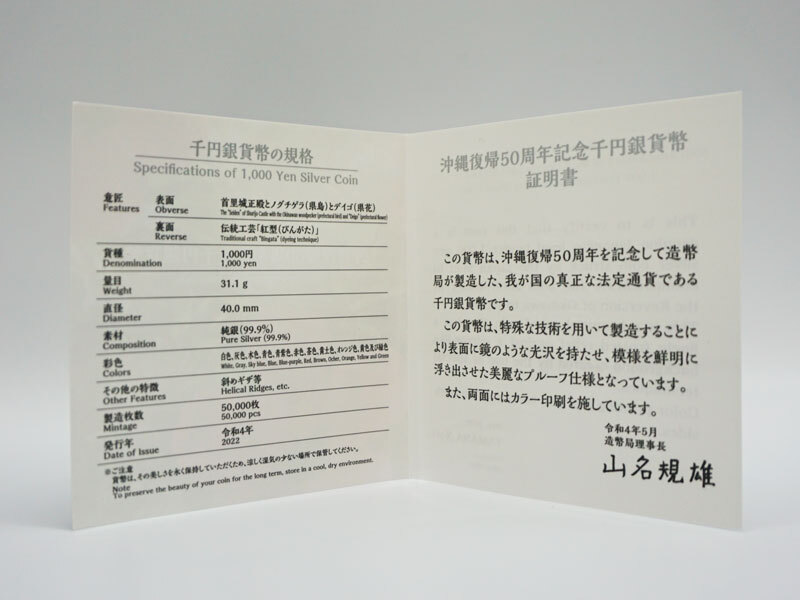 千円銀貨幣の規格
Specifications of 1,000 Yen Silver Coin
意匠 Features 表面 Obverse 首里城正殿とノグチゲラ（県鳥）とデイゴ（県花）
The "Seiden" of Shurijo Castle with the Okinawan woodpecker (prefectural bird) and "Deigo" (prefectural flower)
裏面 Reverse 伝統工芸「紅型（びんがた）」
Traditional craft "Bingata" (dyeing technique)
貨種 1,000円
Denomination 1,000 yen
量目 31.1 g
Weight
直径 40.0 mm
Diameter
素材 純銀（99.9%）
Composition Pure Silver (99.9%)
彩色 白色、灰色、水色、青色、青紫色、赤色、茶色、黄土色、オレンジ色、黄色及び緑色
Colors White, Gray, Sky blue, Blue, Blue-purple, Red, Brown, Ocher, Orange, Yellow and Green
その他の特徴 斜めギザ等
Other Features Helical Ridges, etc.
製造枚数 50,000枚
Mintage 50,000 pcs
発行年 令和4年
Date of Issue 2022
※ご注意
貨幣は、その美しさを永く保持していただくため、涼しく湿気の少ない場所で保管してください。
Note
To preserve the beauty of your coin for the long term, store in a cool, dry environment.
沖縄復帰50周年記念千円銀貨幣
証明書
この貨幣は、沖縄復帰50周年を記念して造幣
局が製造した、我が国の真正な法定通貨である
千円銀貨幣です。
この貨幣は、特殊な技術を用いて製造することに
より表面に鏡のような光沢を持たせ、模様を鮮明に
浮き出させた美麗なプルーフ仕様となっています。
また、両面にはカラー印刷を施しています。
令和4年5月
造幣局理事長
山名規雄